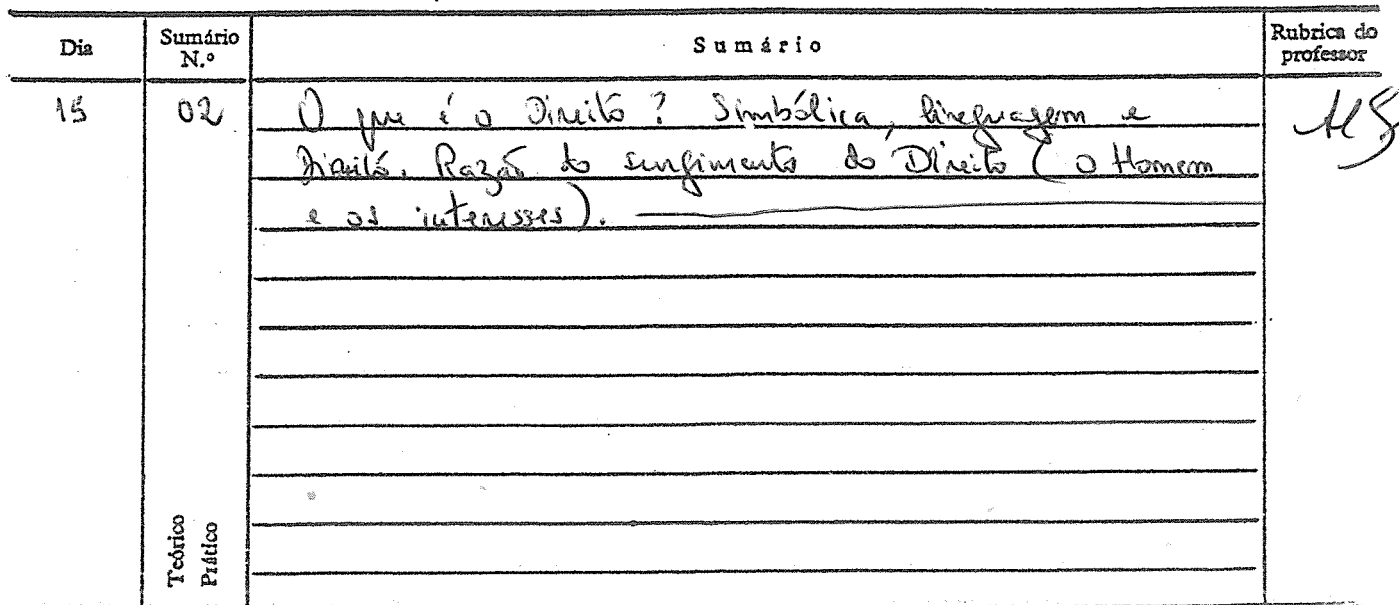 Dia
Sumário N.º
Sumário
Rubrica do professor
15
02
O que é o Direito? Simbólica, linguagem e
Direito. Razão do surgimento do Direito (o Homem
e os interesses).
Teórico
Prático